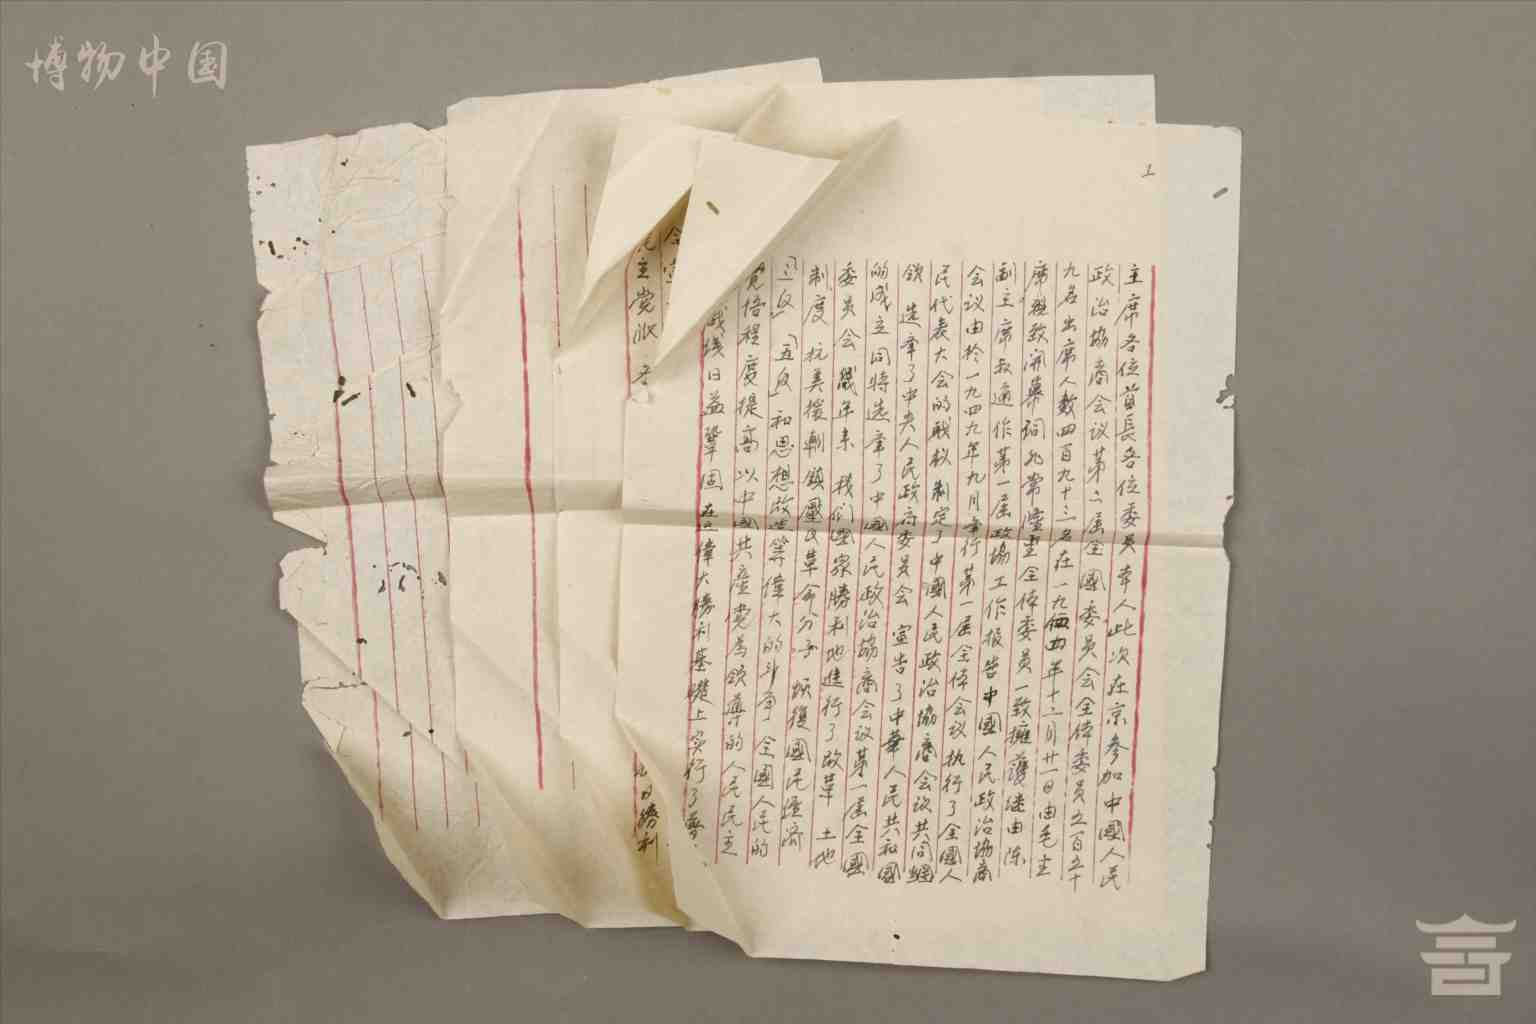 博物中国
主席各位首長各位委員 本人此次在京参加中國人民
政治協商会议第二届全國委員会全体委員五百五十
九名出席人数四百九十三名在一九四年十二月廿一日由毛主
席親致開幕詞非常隆重全体委員一致擁護继由陈
副主席叔通作第一届政協工作报告中國人民政治協商
会议由於一九四九年九月举行第一届全体会议执行了全國人
民代表大会的职权 制定了中國人民政治協商会议共同綱
领 选举了中央人民政府委员会 宣告了中華人民共和國
的成立同時选举了中國人民政治協商会议第一届全國
委员会 幾年来 我们國家勝利地進行了改革 土地
制度 抗美援朝鎮壓反革命分子 恢復國民經濟
「三反」「五反」和思想改造等偉大的斗争 全國人民的
覚悟程度提高以中國共產党為领導的人民民主
战线日益鞏固在这偉大勝利基礎上实行了普
民主党派 各
日勝利